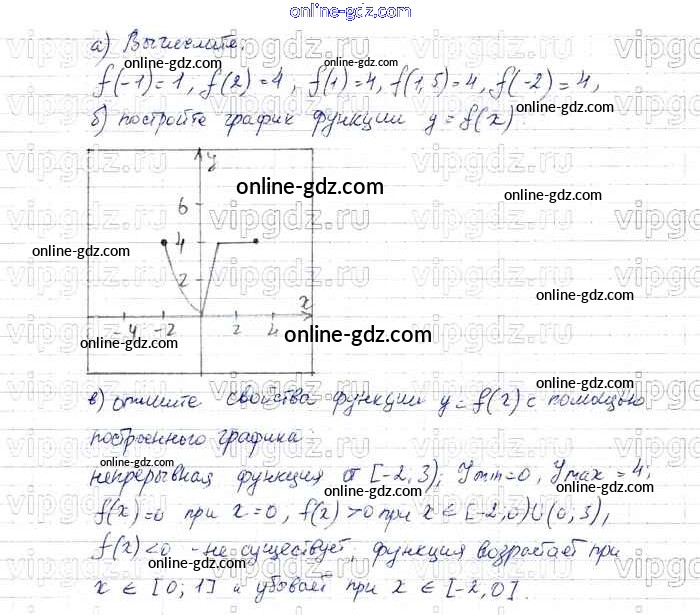 online-gdz.com
а) Вычислите.
online-gdz.com
f(-1)=1, f(2)=4, f(1)=4, f(1,5)=4, f(-2)=4,
online-gdz.com
б) постройте график функции y=f(x).
y
online-gdz.com
online-gdz.com
6
online-gdz.com
4
2
online-gdz.com
x
-4 -2 2 4
online-gdz.com
online-gdz.com
online-gdz.com
в) опишите свойства функции y=f(x) с помощью
построенного графика.
online-gdz.com
online-gdz.com
непрерывная функция от [-2,3), Ymin=0, Ymax=4,
online-gdz.com
online-gdz.com
f(x)=0 при x=0, f(x)>0 при x∈[-2,0)∪(0,3),
online-gdz.com
f(x)<0 - не существует, функция возрастает при
online-gdz.com
online-gdz.com
x∈[0;1] и убывает при x∈[-2,0].
vipgdz.ru